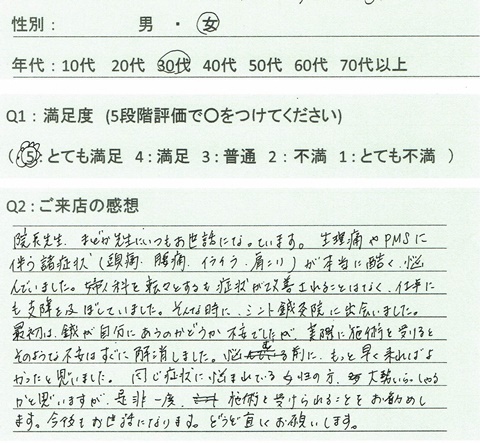 性別： 男 ・ 女
年代：10代 20代 30代 40代 50代 60代 70代以上
Q1：満足度 (5段階評価で〇をつけてください)
( 5：とても満足 4：満足 3：普通 2：不満 1：とても不満 )
Q2：ご来店の感想
院長先生、まどか先生にいつもお世話になっています。生理痛やPMSに
伴う諸症状(頭痛、腰痛、イライラ、肩こり)が本当に酷く、悩
んでいました。婦人科を転々とするも症状が改善されることはなく、仕事に
も支障を及ぼしていました。そんな時に、ミント鍼灸院に出会いました。
最初は、鍼が自分にあうのかどうか不安でしたが、実際に施術を受けると
そのような不安はすぐに解消しました。悩 る前に、もっと早く来ればよ
かったと思いました。同じ症状に悩まれている女性の方、大勢いらっしゃる
かと思いますが、是非一度、施術を受けられることをお勧めし
ます。今後もお世話になります。どうぞ宜しくお願いします。